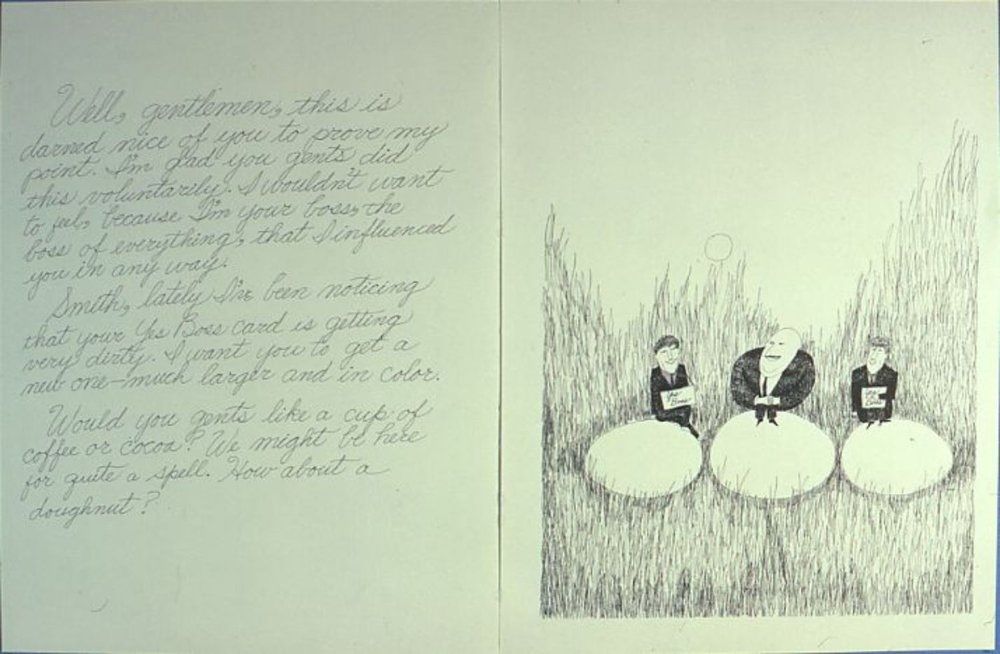 Well, gentlemen, this is
darned nice of you to prove my
point. I'm glad you gents did
this voluntarily. I wouldn't want
to feel, because I'm your boss, the
boss of everything, that I influenced
you in any way.
Smith, lately I've been noticing
that your Yes Boss card is getting
very dirty. I want you to get a
new one—much larger and in color.
Would you gents like a cup of
coffee or cocoa? We might be here
for quite a spell. How about a
doughnut?
Yes
Boss
Yes
Boss